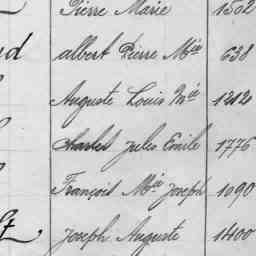 Pierre Marie 1502
albert Pierre Mie 638
Auguste Louis Mie 1212
Charles Jules Emile 1776
François Mie Joseph 1090
Joseph Auguste 1400